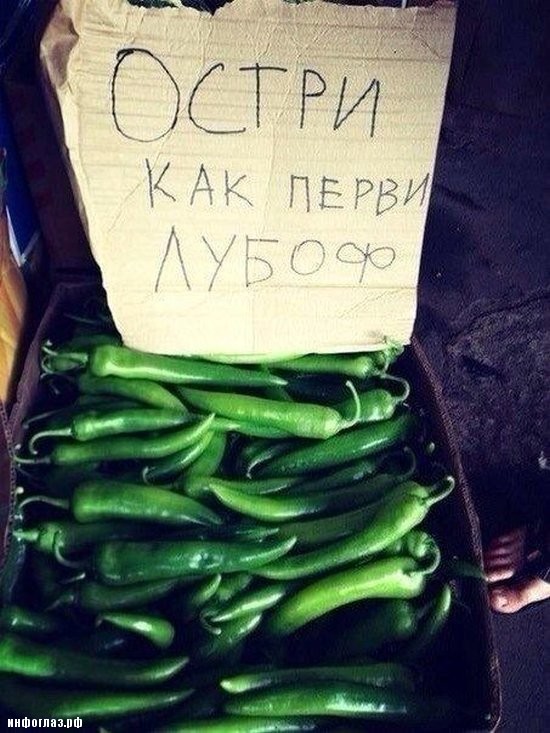 ОСТРИ
КАК ПЕРВИ
ЛУБОФ
инфоглаз.рф